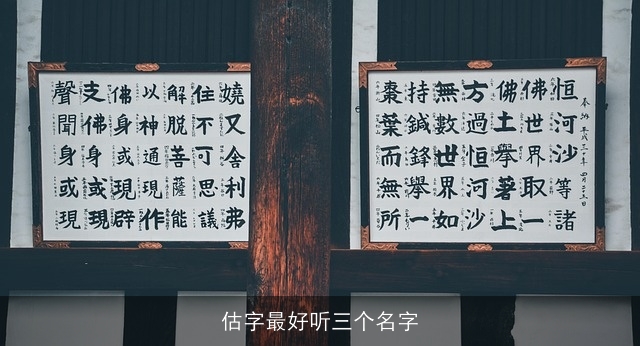 奉納 平成三十年
恒河沙等諸
佛世界取一
佛土擧著上
方過恒河沙
無數世界如
持鍼鋒擧一
棗葉而無所
嬈又舍利弗
住不可思議
解脱菩薩能
以神通現作
佛身或現辟
支佛身或現
聲聞身或現
估字最好听三个名字